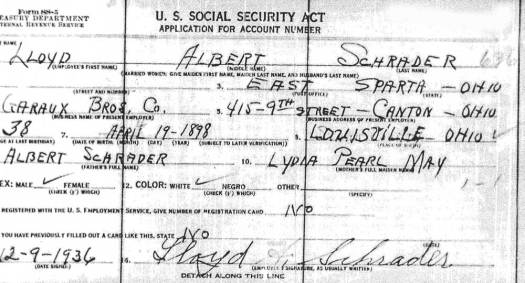 Form SS-5
U. S. SOCIAL SECURITY ACT
EASURY DEPARTMENT
TERNAL REVENUE SERVICE
APPLICATION FOR ACCOUNT NUMBER
NAME
LLOYD ALBERT SCHRADER
(EMPLOYEE'S FIRST NAME) (MIDDLE NAME) (LAST NAME)
(MARRIED WOMEN: GIVE MAIDEN FIRST NAME, MAIDEN LAST NAME, AND HUSBAND'S LAST NAME)
3. EAST SPARTA - OHIO
(STREET AND NUMBER) (POST OFFICE) (STATE)
GARAUX BROS. CO. 5. 415-9TH STREET - CANTON - OHIO
(BUSINESS NAME OF PRESENT EMPLOYER) (BUSINESS ADDRESS OF PRESENT EMPLOYER)
38 7. APRIL 19-1898 8. LOUISVILLE OHIO
GE AT LAST BIRTHDAY) (DATE OF BIRTH: (MONTH) (DAY) (YEAR) (SUBJECT TO LATER VERIFICATION)) (PLACE OF BIRTH)
ALBERT SCHRADER 10. LYDIA PEARL MAY
(FATHER'S FULL NAME) (MOTHER'S FULL MAIDEN NAME)
EX: MALE ✓ FEMALE 12. COLOR: WHITE ✓ NEGRO OTHER
(CHECK (✓) WHICH) (CHECK (✓) WHICH) (SPECIFY)
REGISTERED WITH THE U. S. EMPLOYMENT SERVICE, GIVE NUMBER OF REGISTRATION CARD NO
YOU HAVE PREVIOUSLY FILLED OUT A CARD LIKE THIS, STATE NO
12-9-1936 Lloyd A. Schrader
(DATE SIGNED) (EMPLOYEE'S SIGNATURE, AS USUALLY WRITTEN)
DETACH ALONG THIS LINE